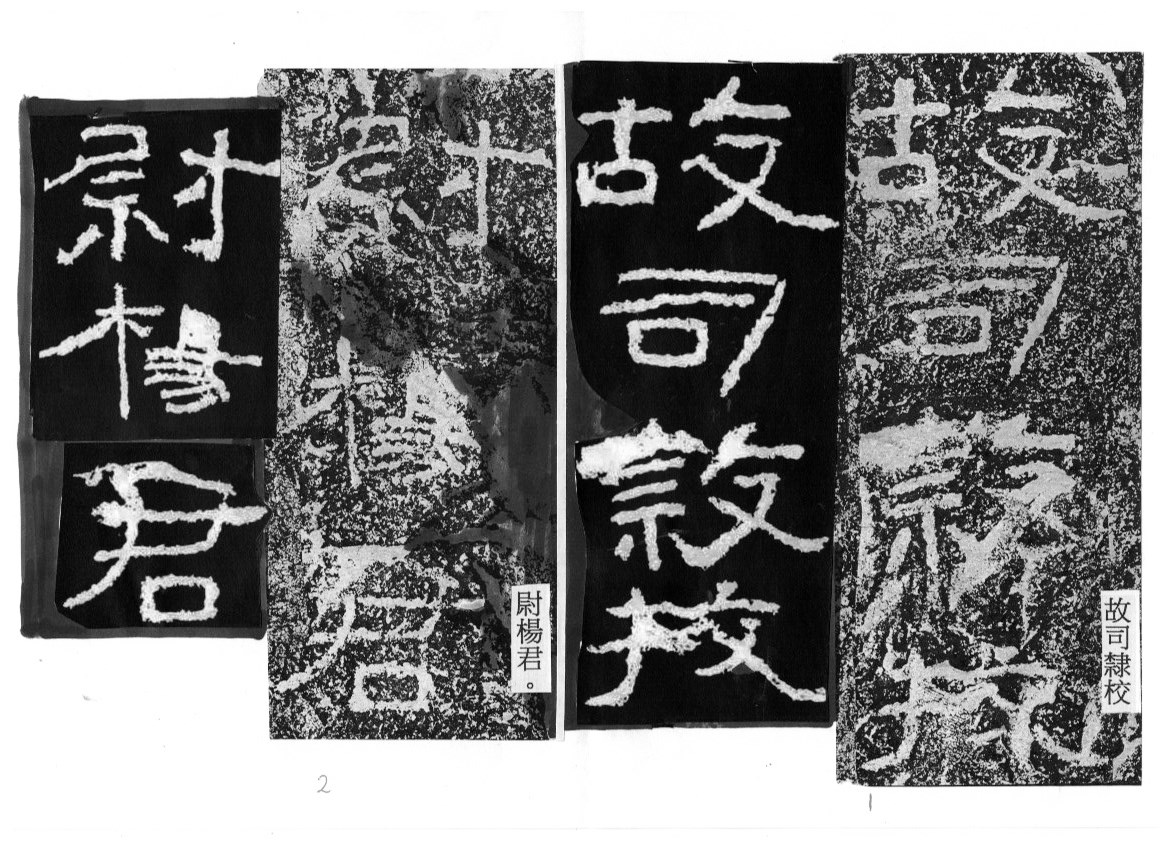 故司隸校
故司隸校
故司隸校
尉楊君。
尉楊君
尉楊君
1
2